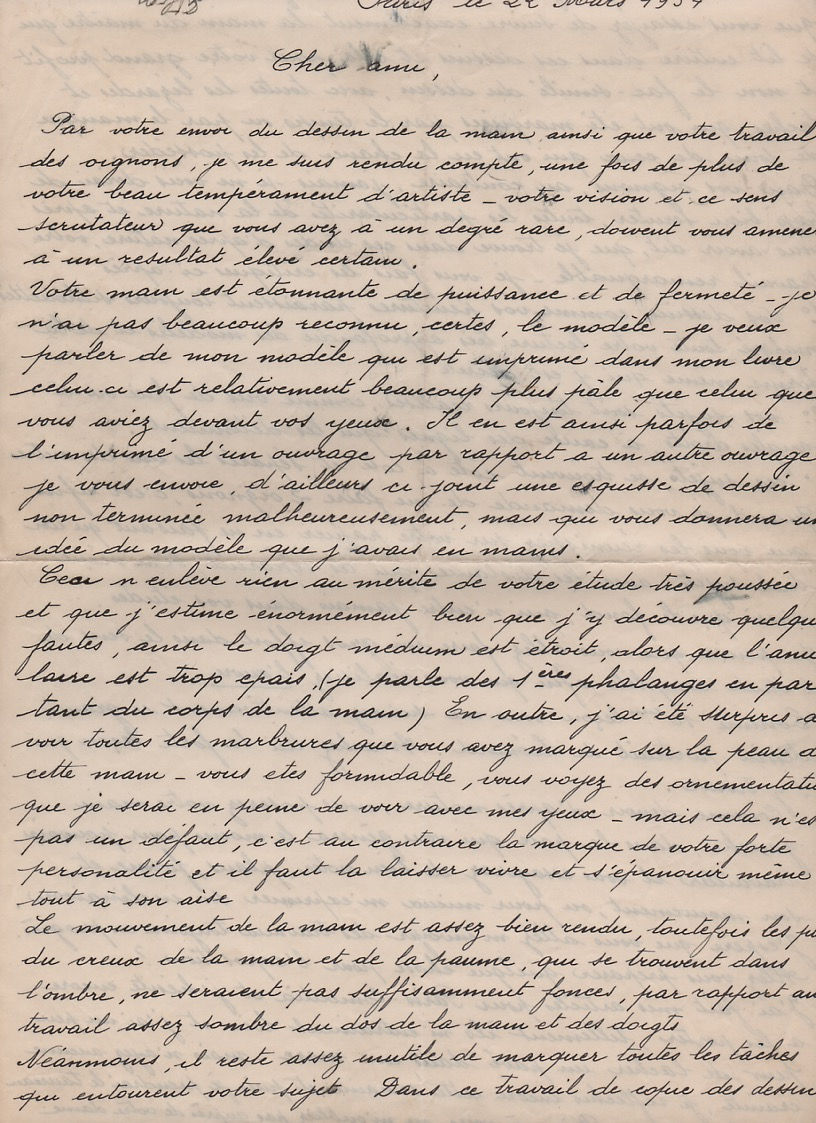 Paris le 22 Mars 1954
Cher ami,
Par votre envoi du dessin de la main ainsi que votre travail
des oignons, je me suis rendu compte, une fois de plus de
votre beau tempérament d'artiste - votre vision et ce sens
scrutateur que vous avez à un degré rare, doivent vous amene
à un resultat élevé certain.
Votre main est étonnante de puissance et de fermeté - je
n'ai pas beaucoup reconnu, certes, le modèle - je veux
parler de mon modèle qui est imprimé dans mon livre
celui-ci est relativement beaucoup plus pâle que celui que
vous aviez devant vos yeux. Il en est ainsi parfois de
l'imprimé d'un ouvrage par rapport a un autre ouvrage
je vous envoie, d'ailleurs ci-joint une esquisse de dessin
non terminée malheureusement, mais qui vous donnera un
idée du modèle que j'avais en mains.
Ceci n'enlève rien au mérite de votre étude très poussée
et que j'estime énormément bien que j'y découvre quelqu
fautes, ainsi le doigt médium est étroit, alors que l'annu
laire est trop epais, (je parle des 1ères phalanges en par
tant du corps de la main) En outre, j'ai été surpris a
voir toutes les marbrures que vous avez marqué sur la peau d
cette main - vous etes formidable, vous voyez des ornementati
que je serai en peine de voir avec mes yeux - mais cela n'es
pas un défaut, c'est au contraire la marque de votre forte
personalité et il faut la laisser vivre et s'épanouir même
tout à son aise
Le mouvement de la main est assez bien rendu, toutefois les
du creux de la main et de la paume, qui se trouvent dans
l'ombre, ne seraient pas suffisamment foncés, par rapport au
travail assez sombre du dos de la main et des doigts
Néanmoins, il reste assez inutile de marquer toutes les tâches
qui entourent votre sujet Dans ce travail de copie des dessin